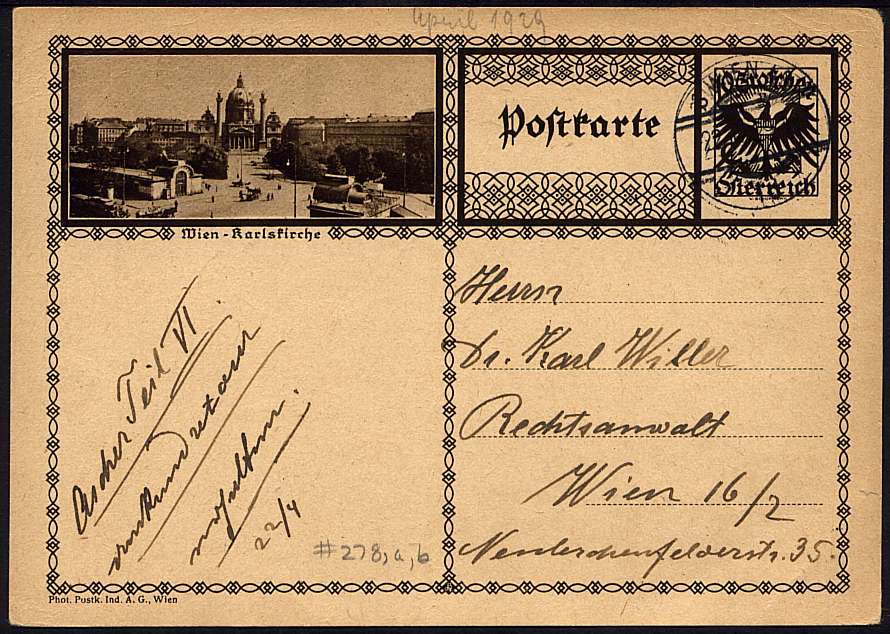 April 1929
Postkarte
10 Groschen
Österreich
WIEN
Wien - Karlskirche
Ascher Teil VI
dankend retour
erhalten.
22/4
#278, a, b
Herrn
Dr. Karl Willer
Rechtsanwalt
Wien 16/2
Neulerchenfelderstr. 35.
Phot. Postk. Ind. A. G., Wien